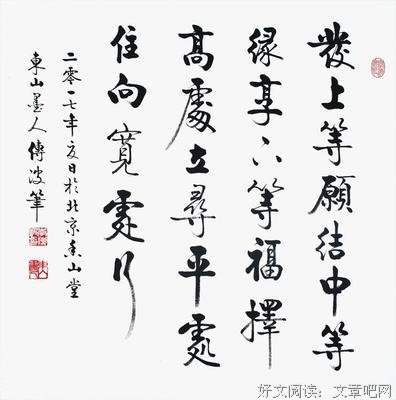 發上等願結中等
緣享下等福擇
高處立尋平處
住向寬處行
二零一七年夏日於北京香山堂
東山墨人傅波筆
好文阅读：文章吧网